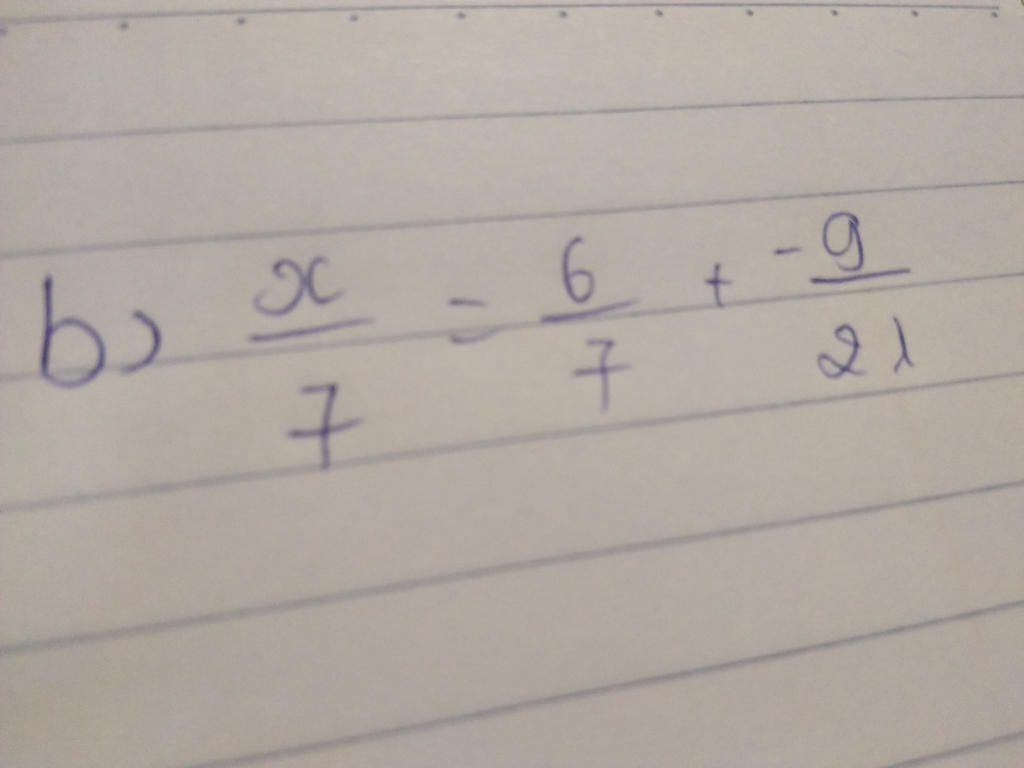 b) x/7 = 6/7 + -9/21